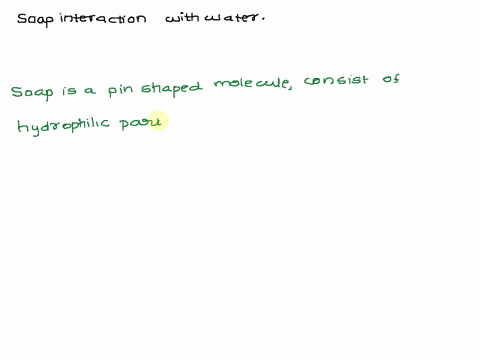 Soap interaction with water.
Soap is a pin shaped molecule, consist of
hydrophilic part